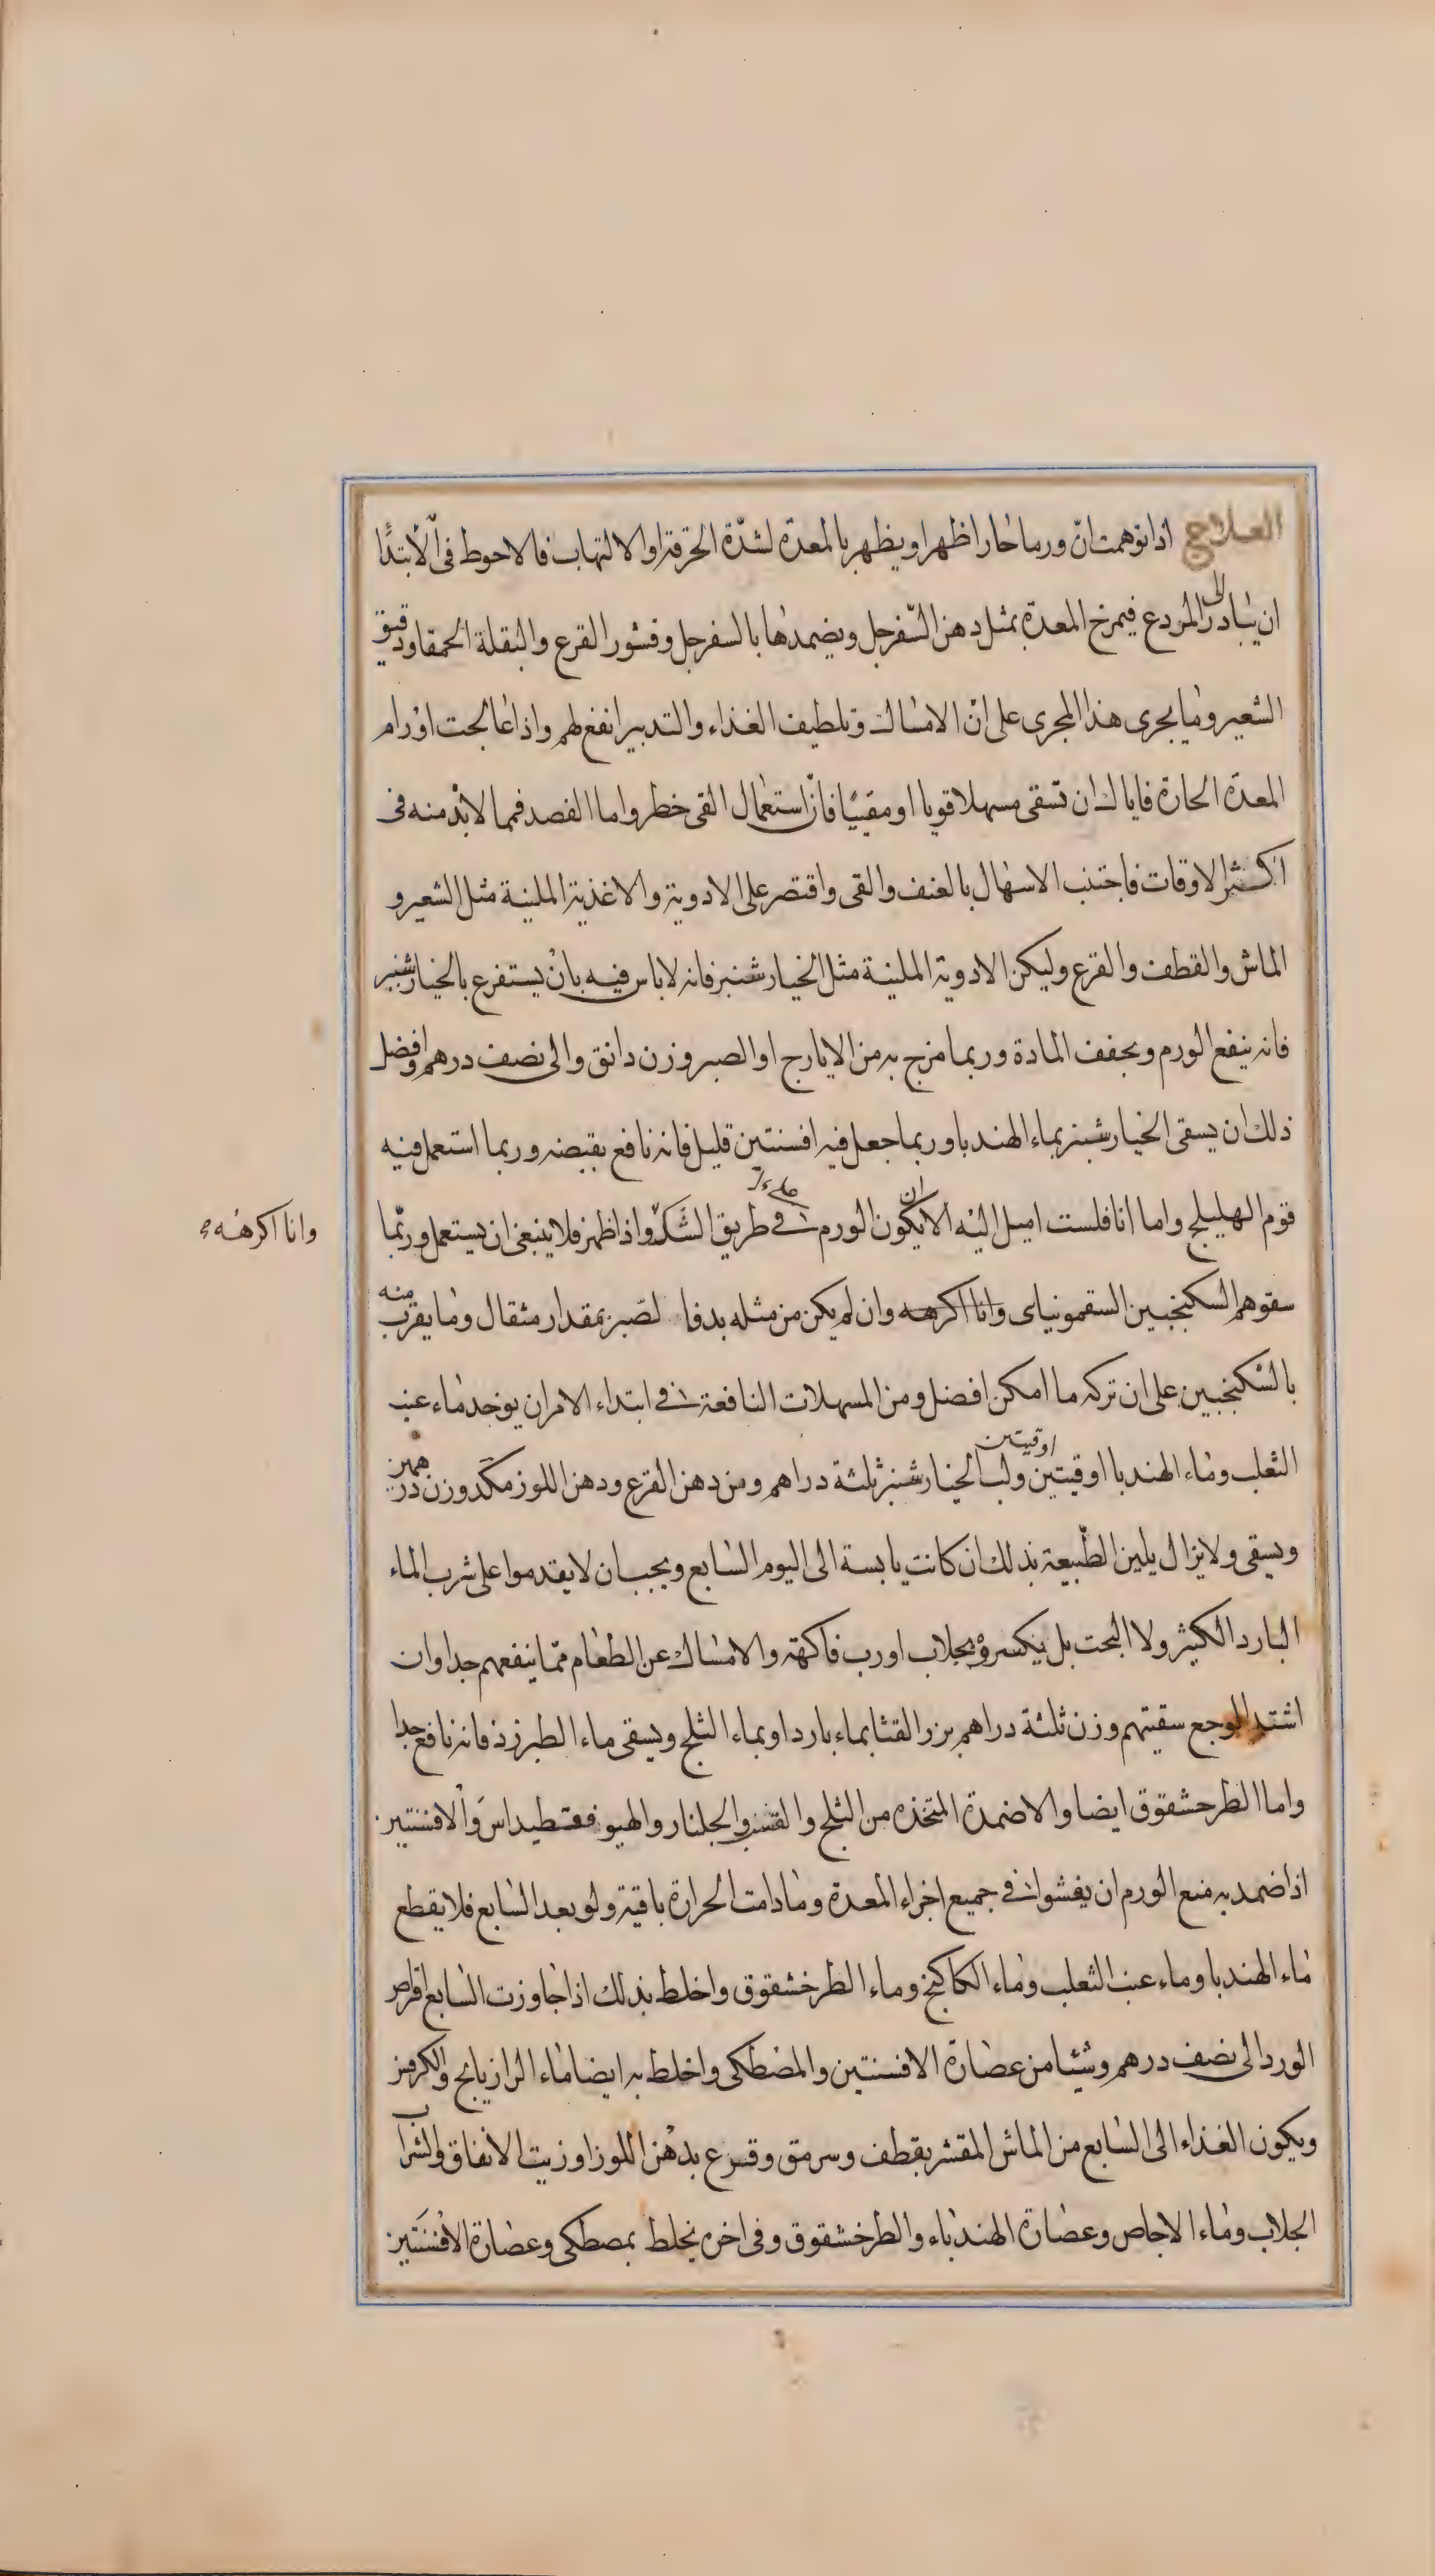 العلاج اذا توهمت انّ ورما حارا ظهر او يظهر بالمعدة لشدّة الحرقة او الالتهاب فالاحوط فى الابتدا
ان يبادر الى المردع فيمرخ المعدة بمثل دهن السّفرجل ويضمدها بالسفرجل وقشور القرع والبقلة الحمقا ودقيق
الشعير وما يجرى هذا المجرى على انّ الامساك وتلطيف الغذاء والتدبير انفع لهم واذا عالجت اورام
المعدة الحارة فاياك ان تسقى مسهلا قويا او مقيئا فانّ استعمال القى خطر واما الفصد فمما لابد منه فى
اكثر الاوقات فاجتنب الاسهال بالعنف والقى واقتصر على الادوية والاغذية الملينة مثل الشعير و
الماش والقطف والقرع وليكن الادوية الملينة مثل الخيارشنبر فانه لا باس فيه بان يستفرغ بالخيارشنبر
فانه ينفع الورم ويجفف المادة وربما مزج به من الايارج او الصبر وزن دانق والى نصف درهم وافضل
ذلك ان يسقى الخيارشنبر بماء الهندبا وربما جعل فيه افسنتين قليل فانه نافع بقبضه وربما استعمل فيه
قوم الهليلج واما انا فلست اميل اليه الا ان يكون الورم فى طريق التشكّل واذا ظهر فلا ينبغى ان يستعمل وربّما
وانا اكرهه
سقوهم السكنجبين السقمونياى وانا اكرهه وان لم يكن من مثله بد فا لصّبر بمقدار مثقال وما يقرب منه
بالسكنجبين على ان تركه ما امكن افضل ومن المسهلات النافعة فى ابتداء الامر ان يوخد ماء عنب
الثعلب وماء الهندبا اوقيتين اوقيتين ولب الخيارشنبر ثلثة دراهم ومن دهن القرع ودهن اللوز مكد وزن درهمين
ويسقى ولا يزال يلين الطّبيعة بذلك ان كانت يابسة الى اليوم السابع ويجب ان لا يقدموا على شرب الماء
البارد الكثير ولا البحت بل يكسروه بجلاب او رب فاكهة والامساك عن الطعام ممّا ينفعهم جدا وان
اشتد الوجع سقيتهم وزن ثلثة دراهم بزر القثا بماء بارد او بماء الثلج ويسقى ماء الطبرزذ فانه نافع جدا
واما الطرحشقوق ايضا والاضمدة المتخذه من الثلج والقشر والجلنار والهيوفقسطيداس والافسنتين
اذا ضمد به منع الورم ان يفشوا فى جميع اجزاء المعدة وما دامت الحرارة باقية ولو بعد السابع فلا يقطع
ماء الهندبا وماء عنب الثعلب وماء الكاكنج وماء الطرخشقوق واخلط بذلك اذا جاوزت السابع اقراص
الورد الى نصف درهم وشيئا من عصارة الافسنتين والمصطكى واخلط به ايضا ماء الرازيانج والكرفس
ويكون الغذاء الى السابع من الماش المقشر بقطف وسرمق وقرع بدهن اللوز او زيت الانفاق والشراب
الجلاب وماء الاجاص وعصارة الهندباء والطرخشقوق وفى اخره يخلط بمصطكى وعصارة الافسنتين